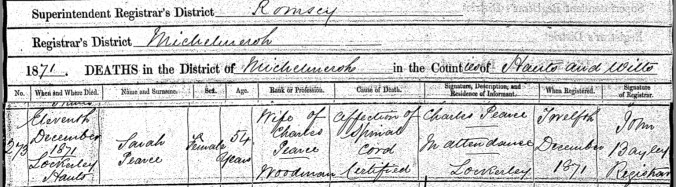 Superintendent Registrar's District Romsey
Registrar's District Michelmersh
1871. DEATHS in the District of Michelmersh in the Counties of Hants and Wilts
No. When and Where Died. Name and Surname. Sex. Age. Rank or Profession. Cause of Death. Signature, Description, and Residence of Informant. When Registered. Signature of Registrar.
273
Eleventh
December
1871
Lockerley
Hants
Sarah
Pearce
Female
54
Years
Wife of
Charles
Pearce
Woodman
Affection of
Spinal
Cord
Certified
Charles Pearce
In attendance
Lockerley
Twelfth
December
1871
John
Bayley
Registrar